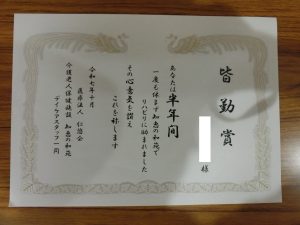 皆勤賞
様
あなたは半年间
一度も休まず知恵の和苑で
リハビリに励まれました
その心意気を讃え
これを称します
令和七年十月
医療法人 仁悠会
介護老人保健施設 知恵の和苑
デイケアスタッフ一同